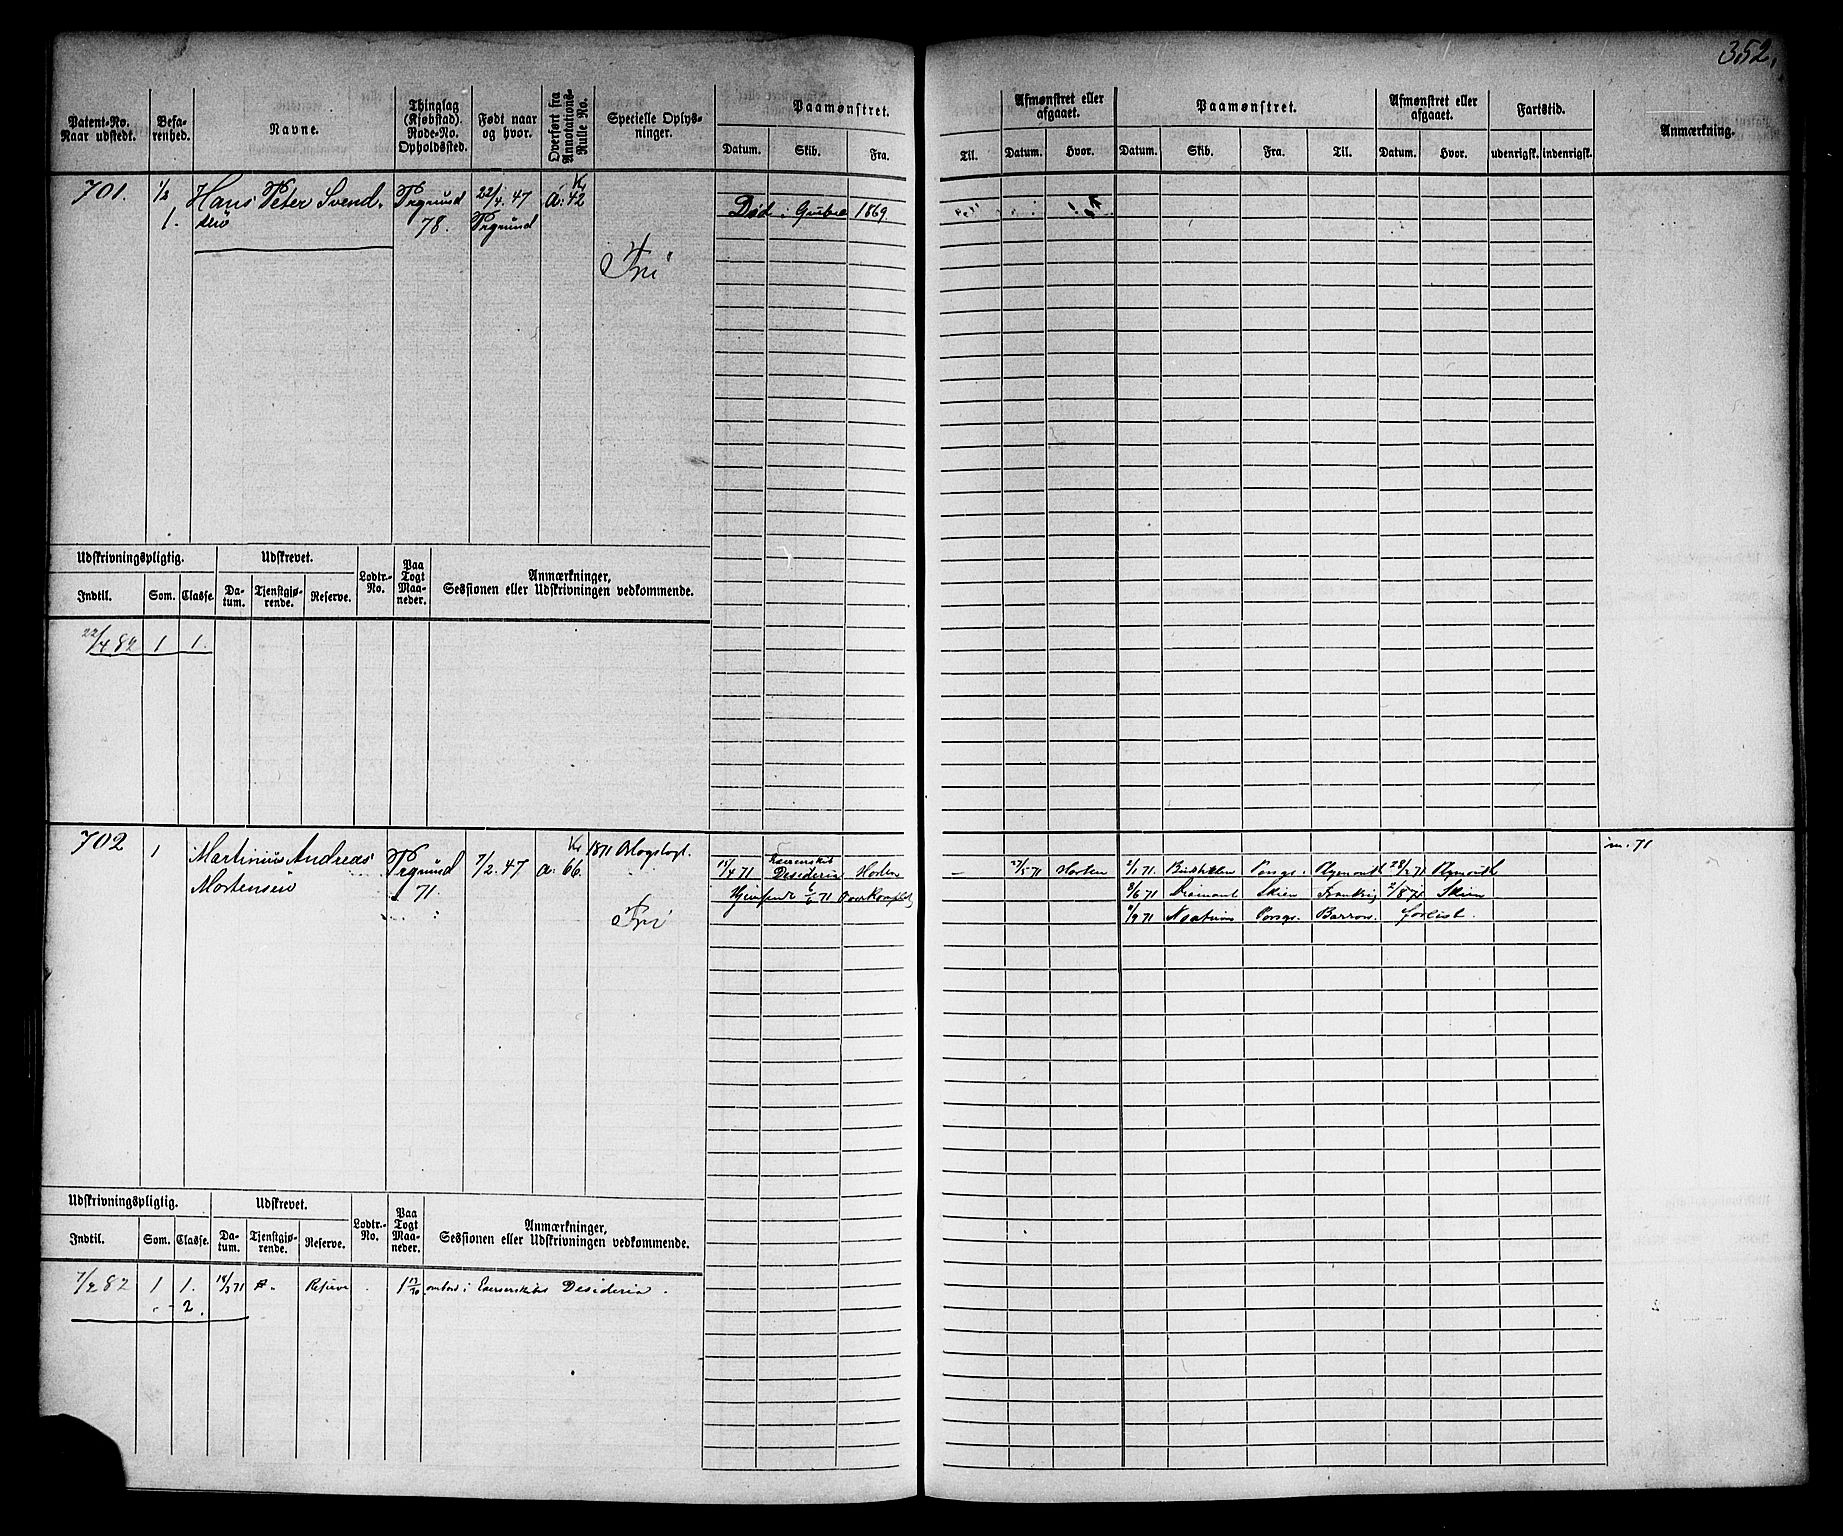 352.
Patent-No. Naar udstedt.
Befarenhed.
Navne.
Thinglag (Kjøbstad). Rode-No. Opholdssted.
Født naar og hvor.
Overført fra Annotations-Rulle No.
Specielle Oplysninger.
Paamønstret.
Datum. Skib. Fra.
Til.
Afmønstret eller afgaaet.
Datum. Hvor.
Paamønstret.
Datum. Skib. Fra. Til.
Afmønstret eller afgaaet.
Datum. Hvor.
Fartstid.
udenrigsk. indenrigsk.
Anmærkning.
701. 1/2 Hans Peter Svend- Prgrund 22/4. 47 a: 42
1. sen 78. Prgrund
Død 1869
Fri
Udskrivningspligtig. Udskrevet. Lodtr.-No. Paa Togt Maaneder. Anmærkninger, Sessionen eller Udskrivningen vedkommende.
Indtil. Som. Classe. Datum. Tjenstgjørende. Reserve.
22/4 82 1 1.
702 1 Martinius Andreas Prgrund 7/2. 47 a: 66. 1871
Mortensen 71.
Fri
15/4 71 Desideria Horten — 27/5 71 Horten 2/1 71 Plymouth 28/2 71 Plymouth
m. 71
3/6 71 Diamant Skien 2/8 71 Skien
11/9 71 Barrow. forlist.
Udskrivningspligtig. Udskrevet. Lodtr.-No. Paa Togt Maaneder. Anmærkninger, Sessionen eller Udskrivningen vedkommende.
Indtil. Som. Classe. Datum. Tjenstgjørende. Reserve.
7/2 82 1 1. 18/3 71 Reserve ombord i Desideria.
2.